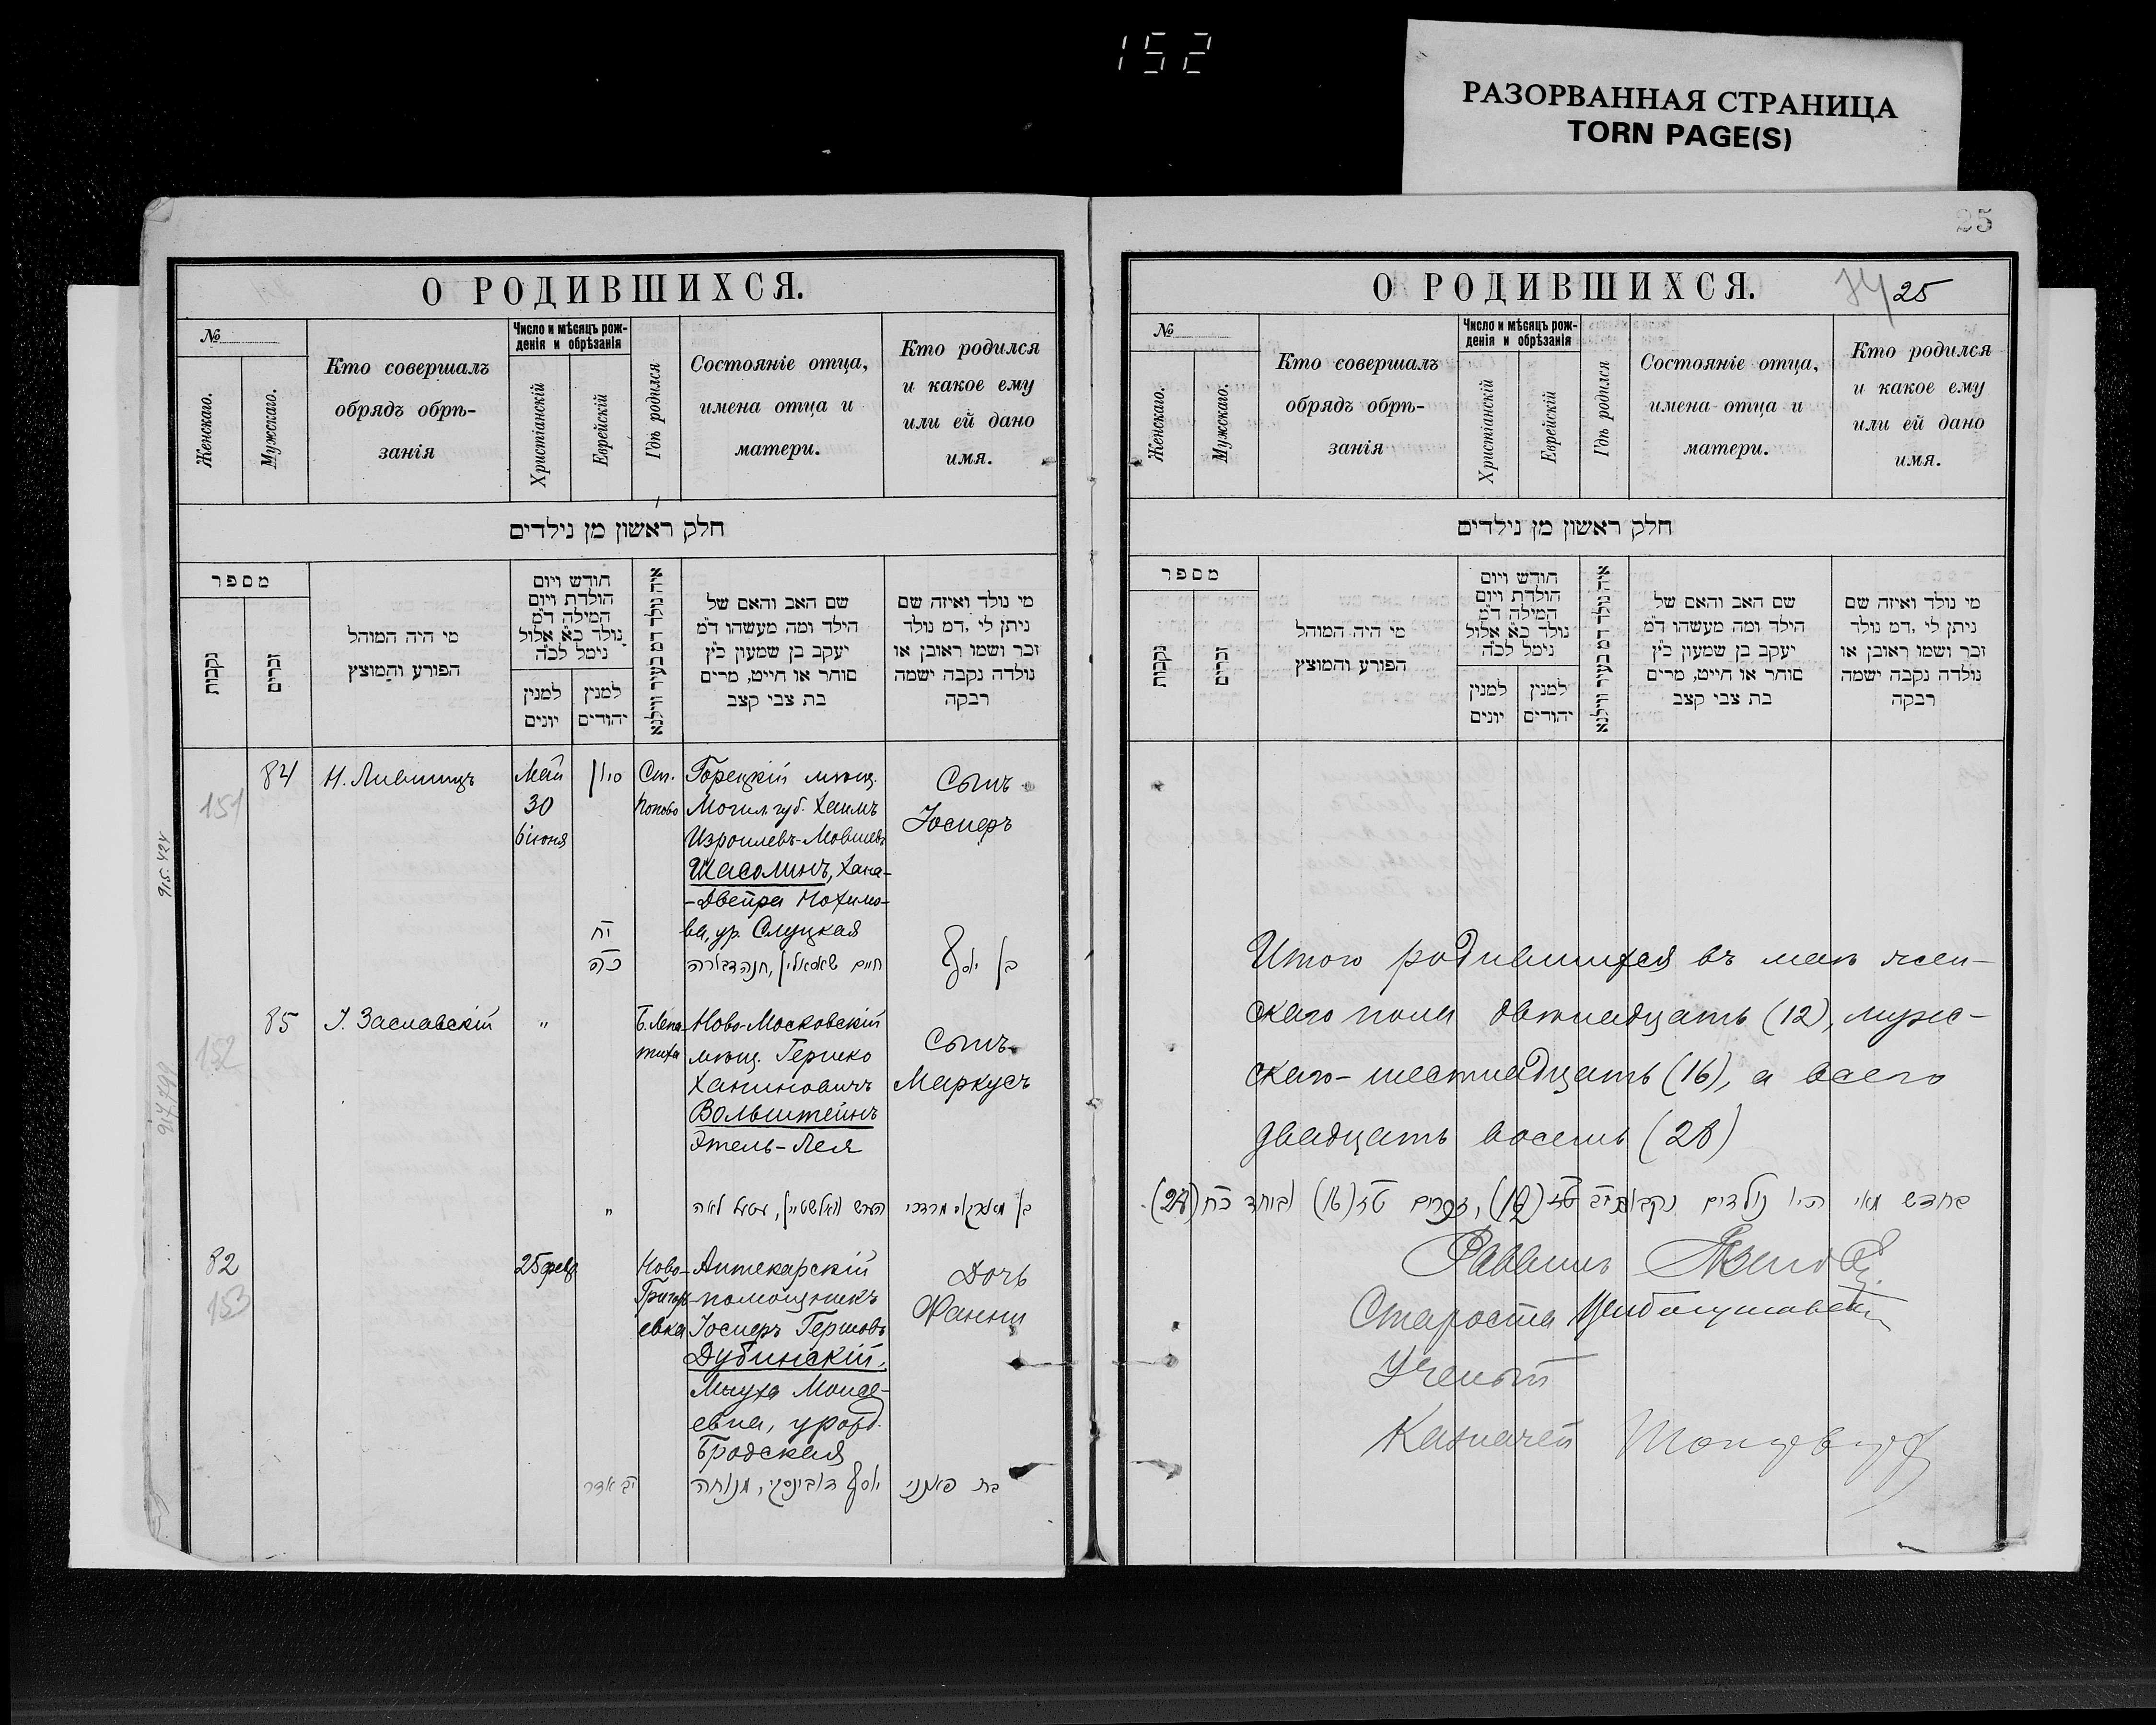 152
РАЗОРВАННАЯ СТРАНИЦА
TORN PAGE(S)
О РОДИВШИХСЯ.
№
Женскаго.
Мужскаго.
Кто совершалъ
обрядъ обрѣ-
занія
Число и мѣсяцъ рож-
денія и обрѣзанія
Христіанскій
Еврейскій
Гдѣ родился
Состояніе отца,
имена отца и
матери.
Кто родился
и какое ему
или ей дано
имя.
חלק ראשון מן נילדים
מספר
נקבות
זכרים
מי היה המוהל
הפורע והמוצץ
חודש ויום
הולדת ויום
המילה ד״מ
נולד כ״א אלול
נימל לכ״ה
למנין
יונים
למנין
יהודים
איה נולד דמ בעיר ווילנא
שם האב והאם של
הילד ומה מעשהו ד״מ
יעקב בן שמעון כ״ץ
סוחר או חייט, מרים
בת צבי קצב
מי נולד ואיזה שם
ניתן לי ,דמ נולד
זכר ושמו ראובן או
נולדה נקבה ישמה
רבקה
84
151
Н. Лившицъ
Май
30
6 іюня
סיון
יח
כה
Ст.
Попово
Горецкій мѣщ.
Могил. губ. Хаимъ
Изроилевъ-Мовшевъ
Шасолинъ, Хана-
-Двейра Нохимо-
ва, ур. Слуцкая
Сынъ
Іосифъ
בן יוסף
85
152
І. Заславскій
"
Б. Лепа-
тиха
Ново-Московскій
мѣщ. Гершко
Ханиновичъ
Вольштейнъ
Этель-Лея
Сынъ
Маркусъ
"
הערש וואלשטיין, עטעל לאה
82
153
25 февр
Ново-
Григорь-
евка
Аптекарскій
помощникъ
Іосифъ Гершовъ
Дубинскій,
Мнуха Моисе-
евна, урожд.
Бродская
Дочь
Фанни
יב אדר
יוסף דובינסקי, מנוחה
בת פאנני
915.424
25
О РОДИВШИХСЯ.
25
№
Женскаго.
Мужскаго.
Кто совершалъ
обрядъ обрѣ-
занія
Число и мѣсяцъ рож-
денія и обрѣзанія
Христіанскій
Еврейскій
Гдѣ родился
Состояніе отца,
имена отца и
матери.
Кто родился
и какое ему
или ей дано
имя.
חלק ראשון מן נילדים
מספר
נקבות
זכרים
מי היה המוהל
הפורע והמוצץ
חודש ויום
הולדת ויום
המילה ד״מ
נולד כ״א אלול
נימל לכ״ה
למנין
יונים
למנין
יהודים
איה נולד דמ בעיר ווילנא
שם האב והאם של
הילד ומה מעשהו ד״מ
יעקב בן שמעון כ״ץ
סוחר או חייט, מרים
בת צבי קצב
מי נולד ואיזה שם
ניתן לי ,דמ נולד
זכר ושמו ראובן או
נולדה נקבה ישמה
רבקה
Итого родившихся въ маѣ жен-
скаго пола двѣнадцать (12), муже-
скаго - шестнадцать (16), а всего
двадцать восемь (28)
בחדש מאי היו נולדים נקבות
זכרים טז (16) וביחד כח (28)
Раввинъ
Староста
Ученый
Казначей